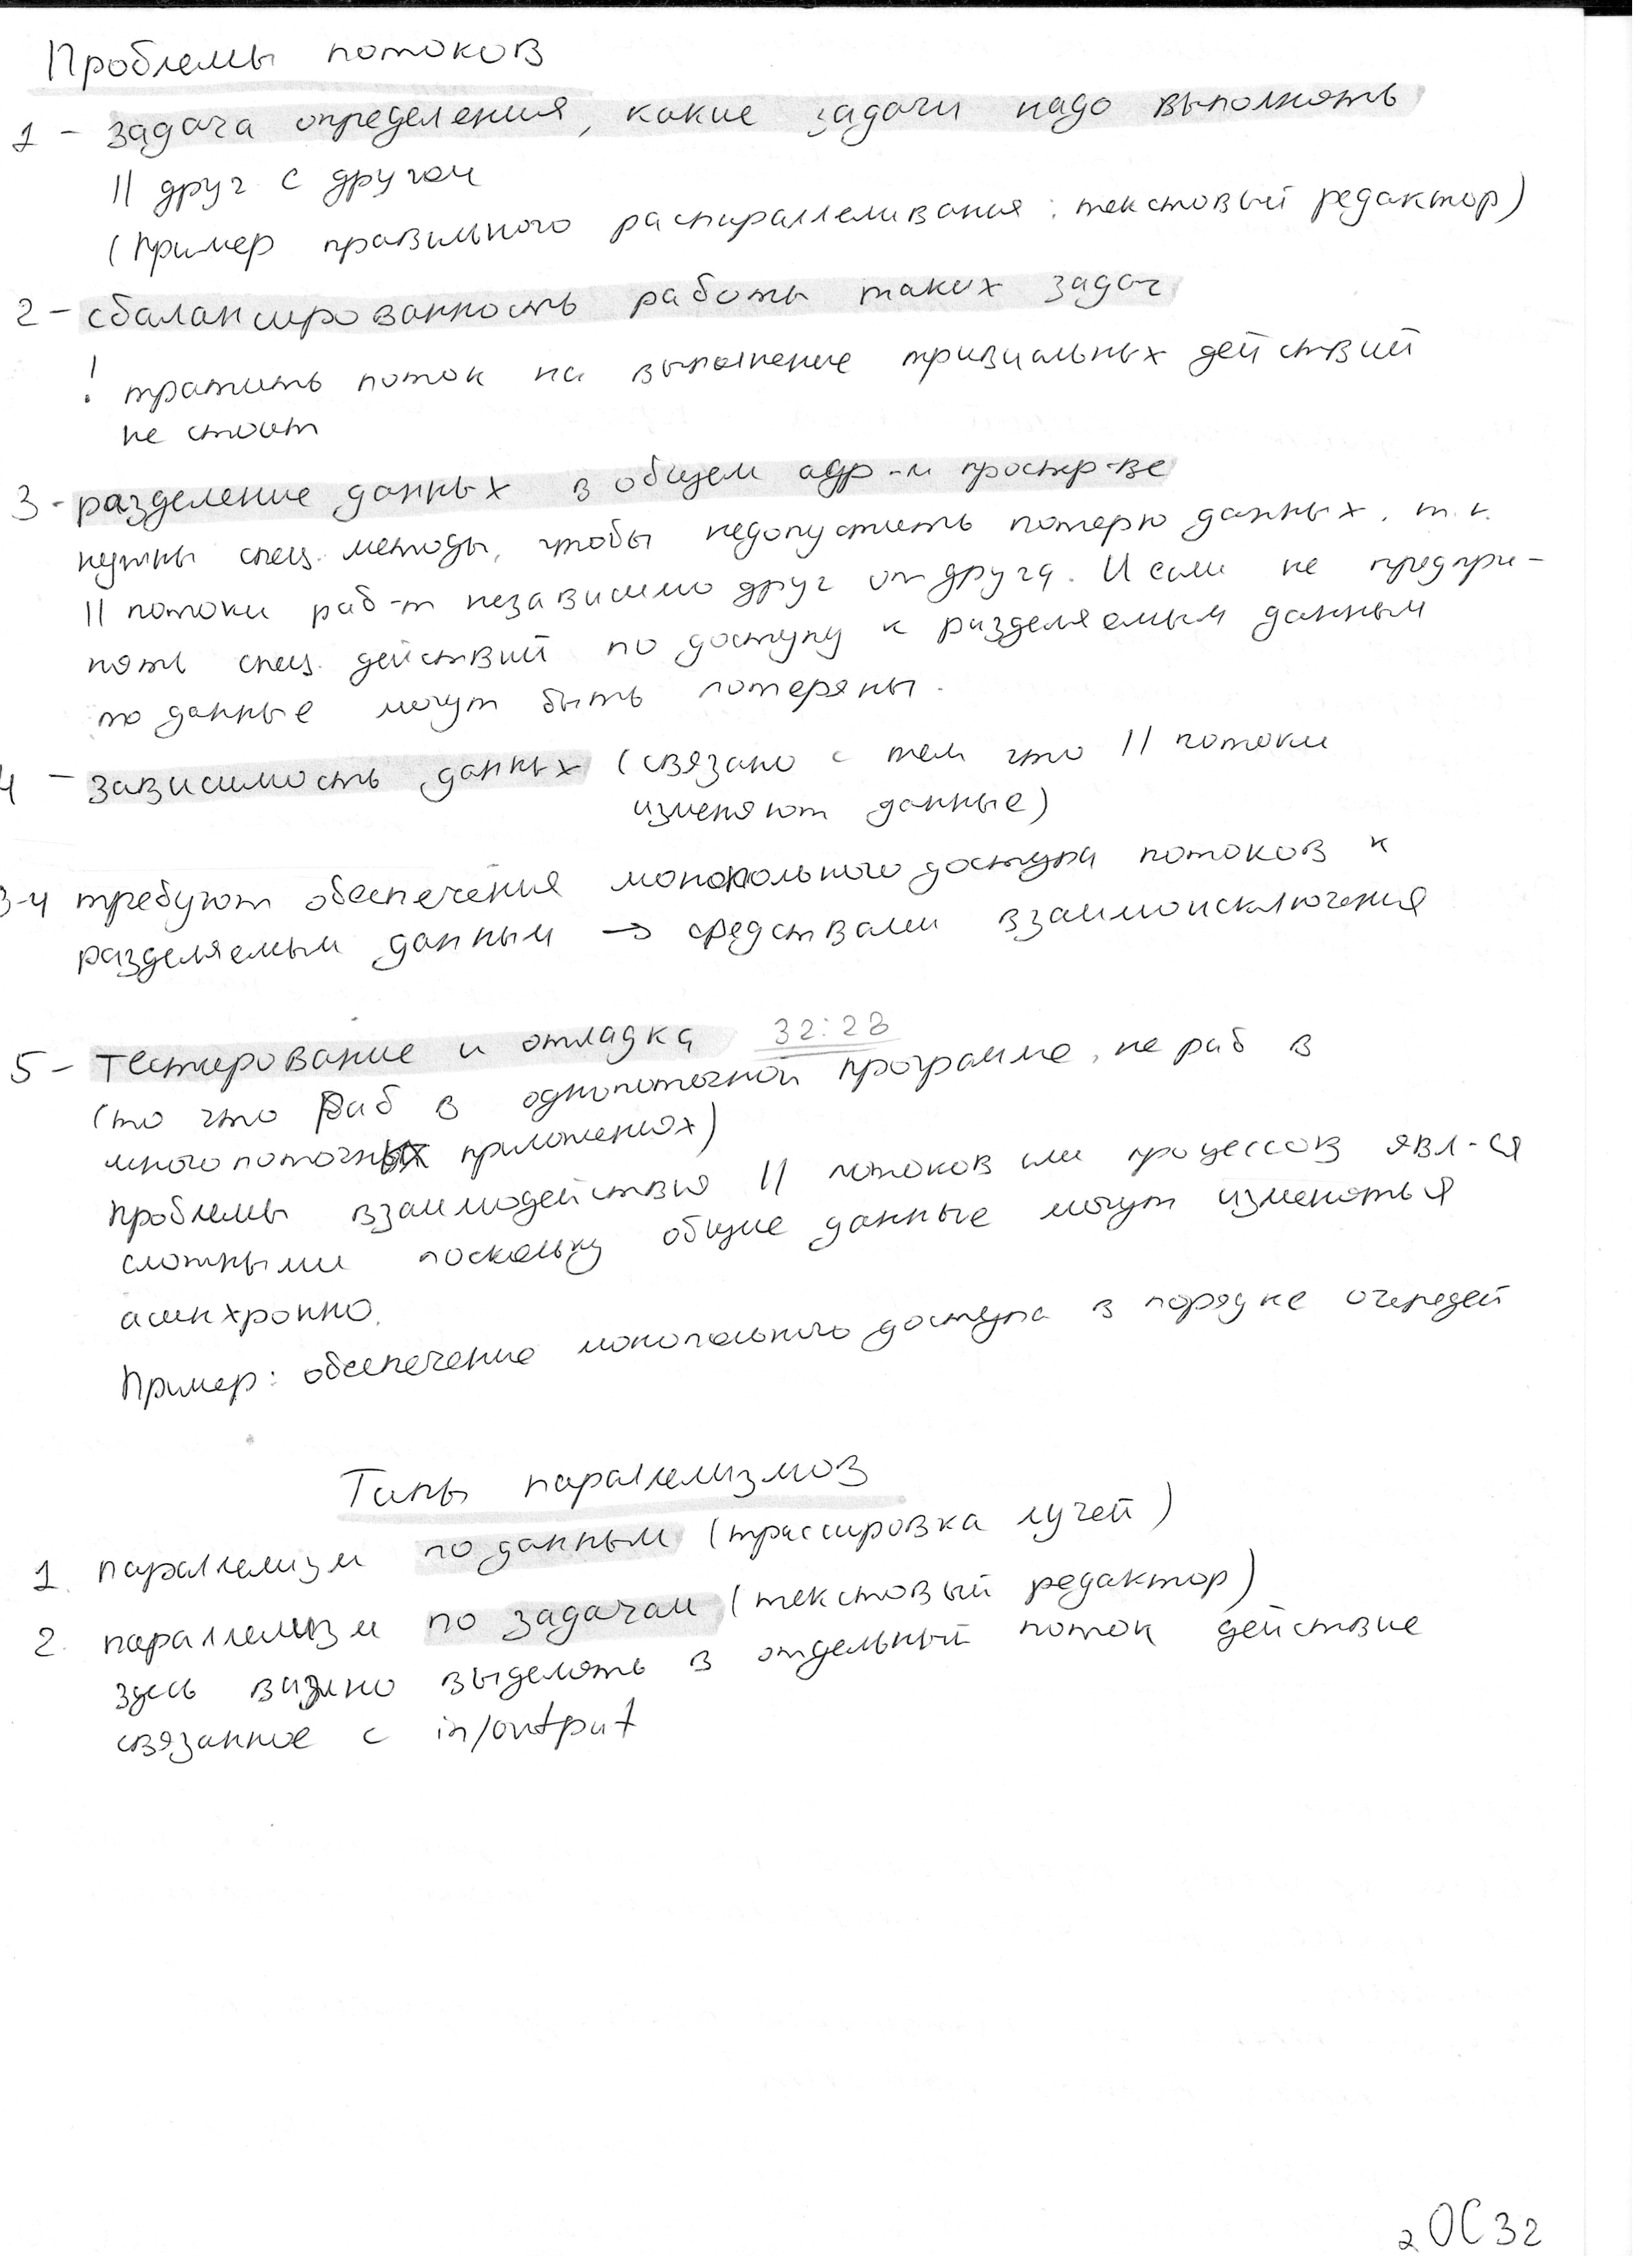 Проблемы потоков
1 - задача определения, какие задачи надо выполнять
|| друг с другом
(Пример правильного распараллеливания: текстовый редактор)
2 - сбалансированность работы таких задач
! тратить поток на выполнение тривиальных действий
не стоит
3 - разделение данных в общем адр-м простр-ве
нужны спец. методы, чтобы недопустить потерю данных, т.к.
|| потоки раб-т независимо друг от друга. И если не предпри-
нять спец. действий по доступу к разделяемым данным
то данные могут быть потеряны.
4 - зависимость данных (связано с тем что || потоки
изменяют данные)
3-4 требуют обеспечения монопольного доступа потоков к
разделяемым данным → средствами взаимоисключения
5 - Тестирование и отладка 32:28
(то что раб в однопоточной программе, не раб в
многопоточных приложениях)
проблемы взаимодействия || потоков или процессов явл-ся
сложными поскольку общие данные могут изменяться
асинхронно.
Пример: обеспечение монопольного доступа в порядке очередей
Типы параллелизмов
1. параллелизм по данным (трассировка лучей)
2. параллелизм по задачам (текстовый редактор)
здесь важно выделять в отдельный поток действие
связанное с in/output
2 ОС 32